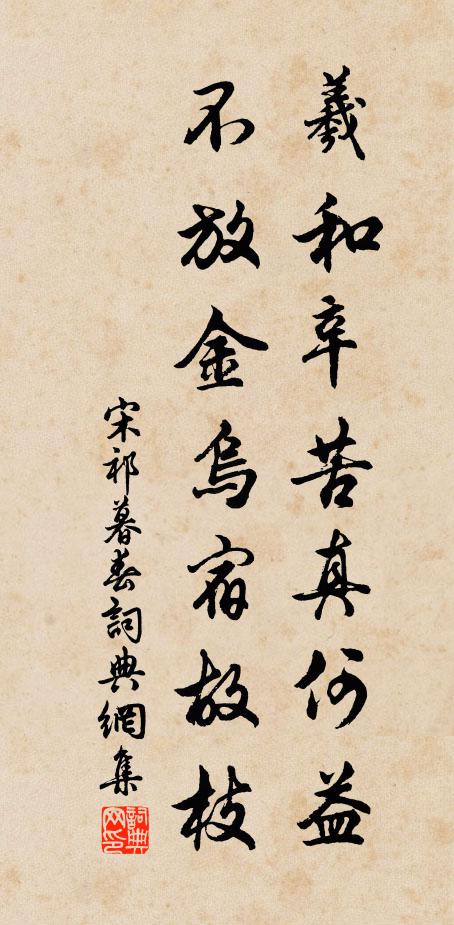 羲和辛苦真何益
不放金烏宿故枝
宋祁暮春詞典網集
詞典网印